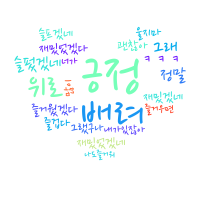 슬프겠네
울지마
재밌었겠다
괜찮아 그래
슬펐겠네 네가
ㅋㅋㅋ
긍정
정말
위로
재밌겠네
즐거웠겠다
배려
즐거우면
즐겁다
그랬구나 내가있잖아
재밌었겠네
나도즐거워